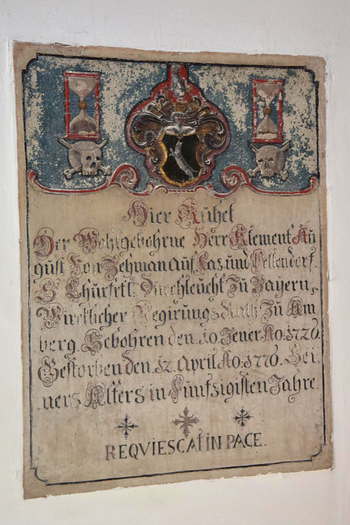 Hier Ruhet
Der Wohlgebohrne Herr Klement Au
gust Von Zehman Auf Kaz und Pellendorf
Sr Churfrtl: Durchleücht Zu Bayern
Würcklicher Regirungs Rath Zu Am
berg. Gebohren den 20 Jener Ao. 1720.
Gestorben den 12. April Ao. 1770. Sei
ners Alters in Fünfzigisten Jahre
REQVIESCAT IN PACE.